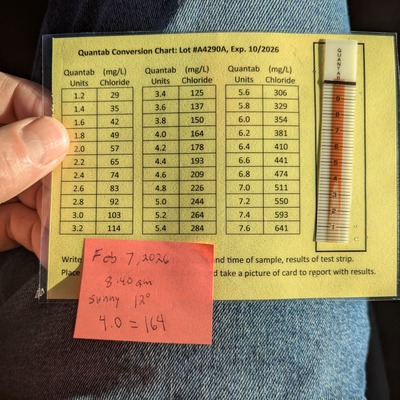 Quantab Conversion Chart: Lot #A4290A, Exp. 10/2026
Quantab Units (mg/L) Chloride Quantab Units (mg/L) Chloride Quantab Units (mg/L) Chloride
1.2 29 3.4 125 5.6 306
1.4 35 3.6 137 5.8 329
1.6 42 3.8 150 6.0 354
1.8 49 4.0 164 6.2 381
2.0 57 4.2 178 6.4 410
2.2 65 4.4 193 6.6 441
2.4 74 4.6 209 6.8 474
2.6 83 4.8 226 7.0 511
2.8 92 5.0 244 7.2 550
3.0 103 5.2 264 7.4 593
3.2 114 5.4 284 7.6 641
QUANTAB
9
8
7
6
5
4
3
2
1
Write nd time of sample, results of test strip.
Place d take a picture of card to report with results.
Feb 7, 2026
8:40 am
sunny 12°
4.0 = 164